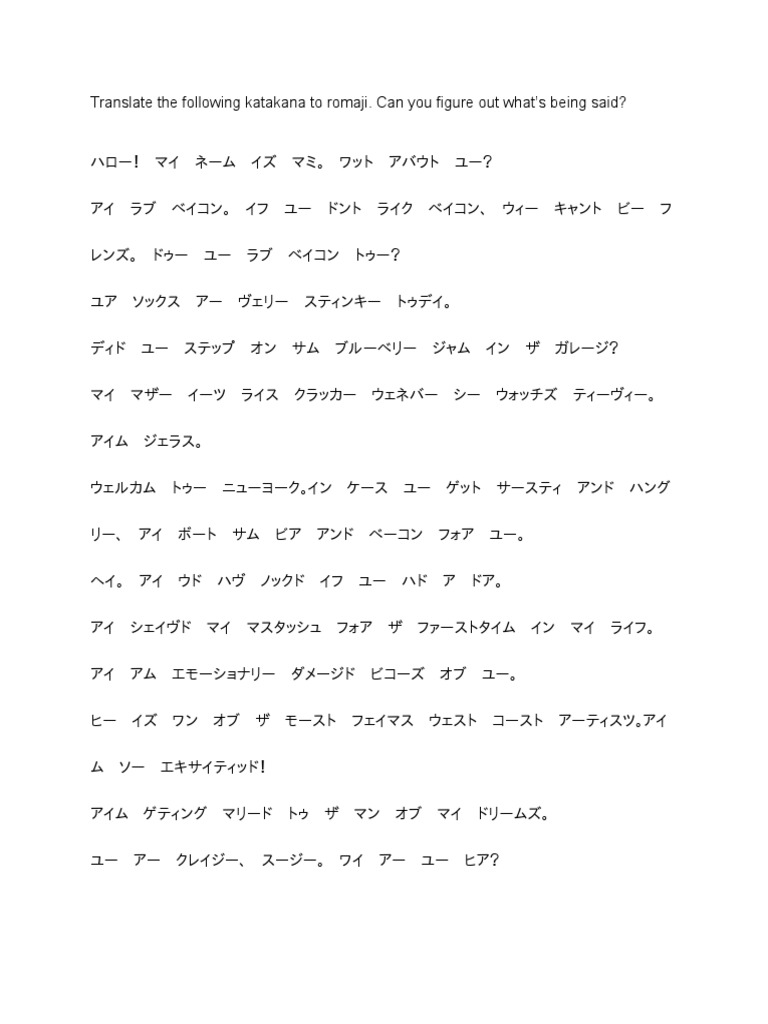 Translate the following katakana to romaji. Can you figure out what's being said?
ハロー！ マイ ネーム イズ マミ。 ワット アバウト ユー？
アイ ラブ ベイコン。 イフ ユー ドント ライク ベイコン、 ウィー キャント ビー フ
レンズ。 ドゥー ユー ラブ ベイコン トゥー？
ユア ソックス アー ヴェリー スティンキー トゥデイ。
ディド ユー ステップ オン サム ブルーベリー ジャム イン ザ ガレージ？
マイ マザー イーツ ライス クラッカー ウェネバー シー ウォッチズ ティーヴィー。
アイム ジェラス。
ウェルカム トゥー ニューヨーク。イン ケース ユー ゲット サースティ アンド ハング
リー、 アイ ボート サム ビア アンド ベーコン フォア ユー。
ヘイ。 アイ ウド ハヴ ノックド イフ ユー ハド ア ドア。
アイ シェイヴド マイ マスタッシュ フォア ザ ファーストタイム イン マイ ライフ。
アイ アム エモーショナリー ダメージド ビコーズ オブ ユー。
ヒー イズ ワン オブ ザ モースト フェイマス ウェスト コースト アーティスツ。アイ
ム ソー エキサイティッド！
アイム ゲティング マリード トゥ ザ マン オブ マイ ドリームズ。
ユー アー クレイジー、 スージー。 ワイ アー ユー ヒア？